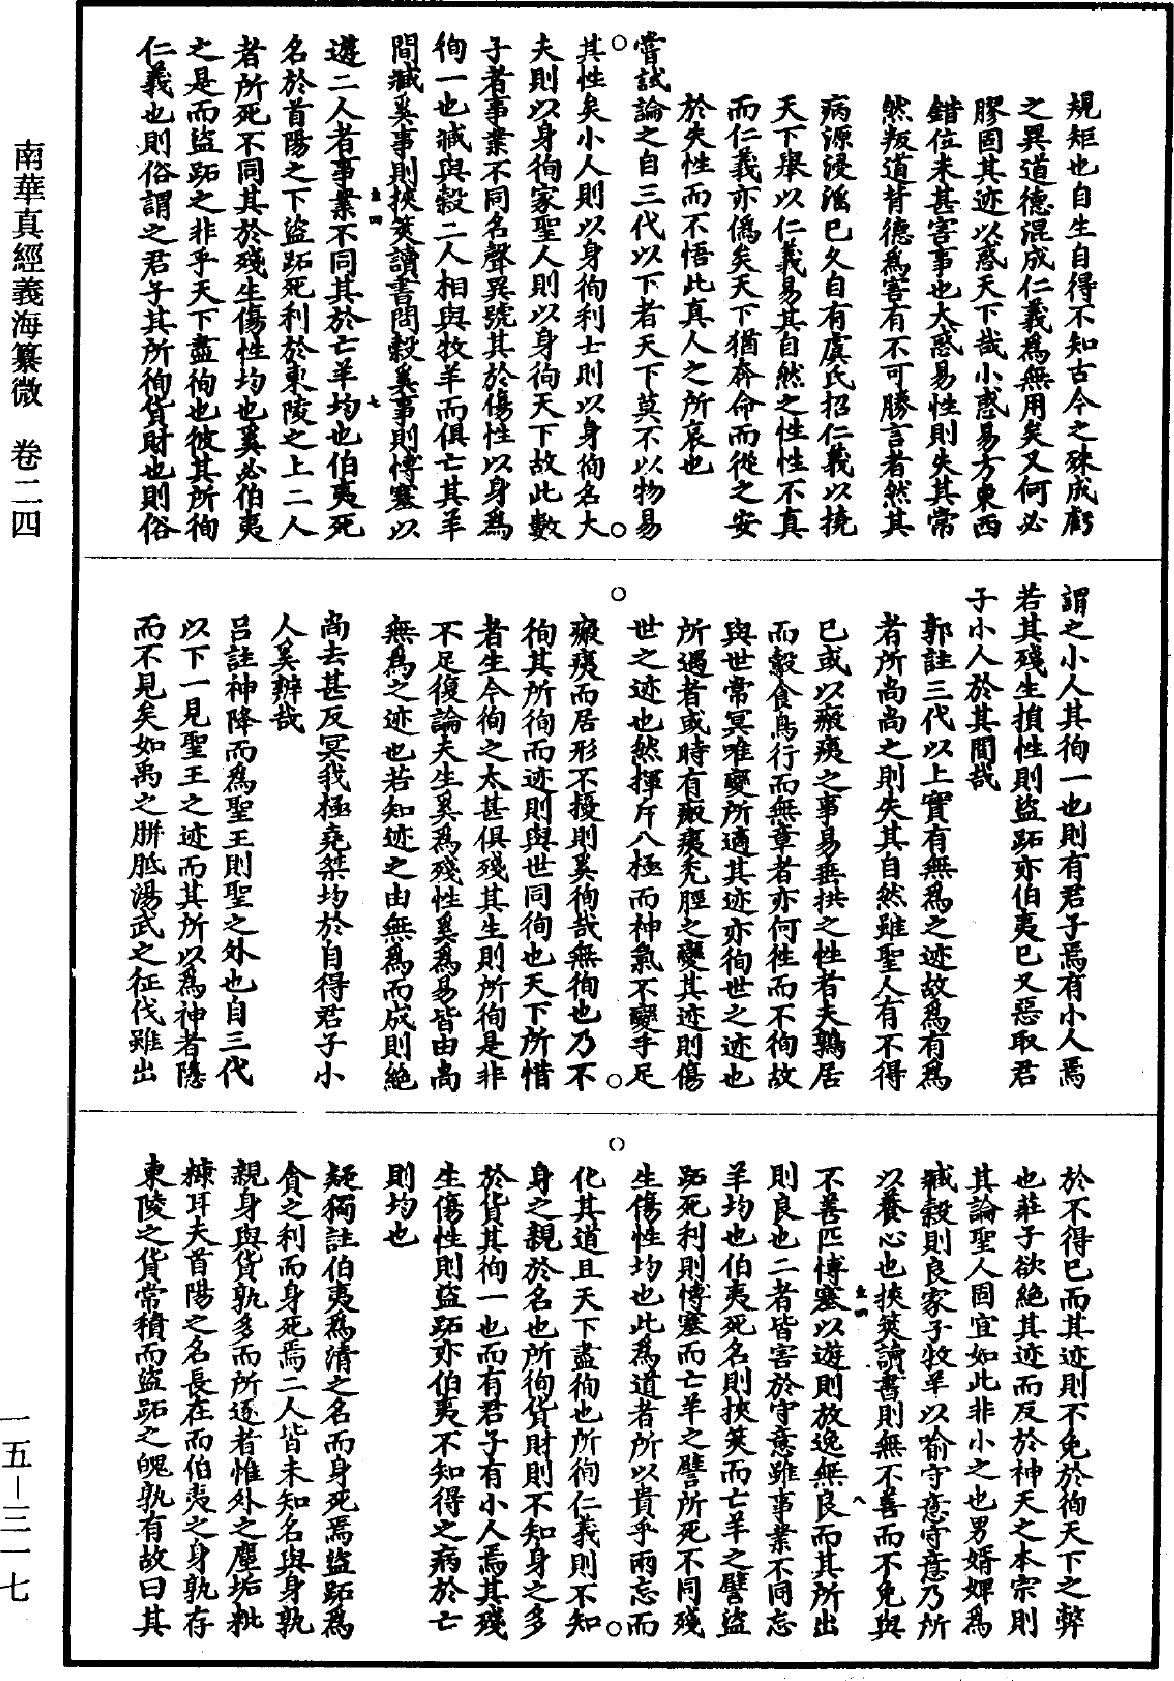 南華真經義海纂微　卷二四
規矩也自生自得不知古今之殊成虧
之異道德混成仁義為無用矣又何必
膠固其迹以惑天下哉小惑易方東西
錯位未甚害事也大惑易性則失其常
然叛道背德為害有不可勝言者然其
病源浸淫已久自有虞氏招仁義以撓
天下舉以仁義易其自然之性性不真
而仁義亦偽矣天下猶奔命而從之安
於失性而不悟此真人之所哀也
嘗試論之自三代以下者天下莫不以物易
其性矣小人則以身徇利士則以身徇名大
夫則以身徇家聖人則以身徇天下故此數
子者事業不同名聲異號其於傷性以身為
徇一也臧與穀二人相與牧羊而俱亡其羊
問臧奚事則挾筴讀書問穀奚事則博塞以
遊二人者事業不同其於亡羊均也伯夷死
名於首陽之下盜跖死利於東陵之上二人
者所死不同其於殘生傷性均也奚必伯夷
之是而盜跖之非乎天下盡徇也彼其所徇
仁義也則俗謂之君子其所徇貨財也則俗
謂之小人其徇一也則有君子焉有小人焉
若其殘生損性則盜跖亦伯夷已又惡取君
子小人於其間哉
郭註三代以上實有無為之迹故為有為
者所尚尚之則失其自然雖聖人有不得
已或以瘢痍之事易垂拱之性者夫鶉居
而鷇食鳥行而無章者亦何往而不徇故
與世常冥唯變所適其迹亦徇世之迹也
所遇者或時有瘢痍禿脛之變其迹則傷
世之迹也然揮斥八極而神氣不變手足
瘢痍而居形不擾則奚徇哉無徇也乃不
徇其所徇而迹則與世同徇也天下所惜
者生今徇之太甚俱殘其生則所徇是非
不足復論夫生奚為殘性奚為易皆由尚
無為之迹也若知迹之由無為而成則絕
尚去甚反冥我極堯桀均於自得君子小
人奚辨哉
呂註神降而為聖王則聖之外也自三代
以下一見聖王之迹而其所以為神者隱
而不見矣如禹之胼胝湯武之征伐雖出
於不得已而其迹則不免於徇天下之弊
也莊子欲絕其迹而反於神天之本宗則
其論聖人固宜如此非小之也男婿婢為
臧穀則良家子牧羊以喻守意守意乃所
以養心也挾筴讀書則無不善而不免與
不善匹博塞以遊則放逸無良而其所出
則良也二者皆害於守意雖事業不同忘
羊均也伯夷死名則挾筴而亡羊之譬盜
跖死利則博塞而亡羊之譬所死不同殘
生傷性均也此為道者所以貴乎兩忘而
化其道且天下盡徇也所徇仁義則不知
身之親於名也所徇貨財則不知身之多
於貨其徇一也而有君子有小人焉其殘
生傷性則盜跖亦伯夷不知得之病於亡
則均也
疑獨註伯夷為清之名而身死焉盜跖為
貪之利而身死焉二人皆未知名與身孰
親身與貨孰多而所逐者惟外之塵垢粃
糠耳夫首陽之名長在而伯夷之身孰存
東陵之貨常積而盜跖之魄孰有故曰其
一五－三一七